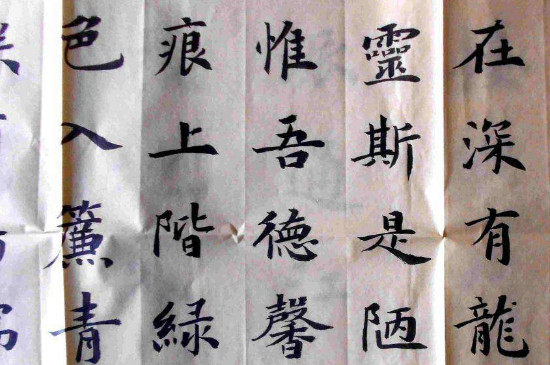 在深有龍
靈斯是陋
惟吾德馨
痕上階緑
色入簾青